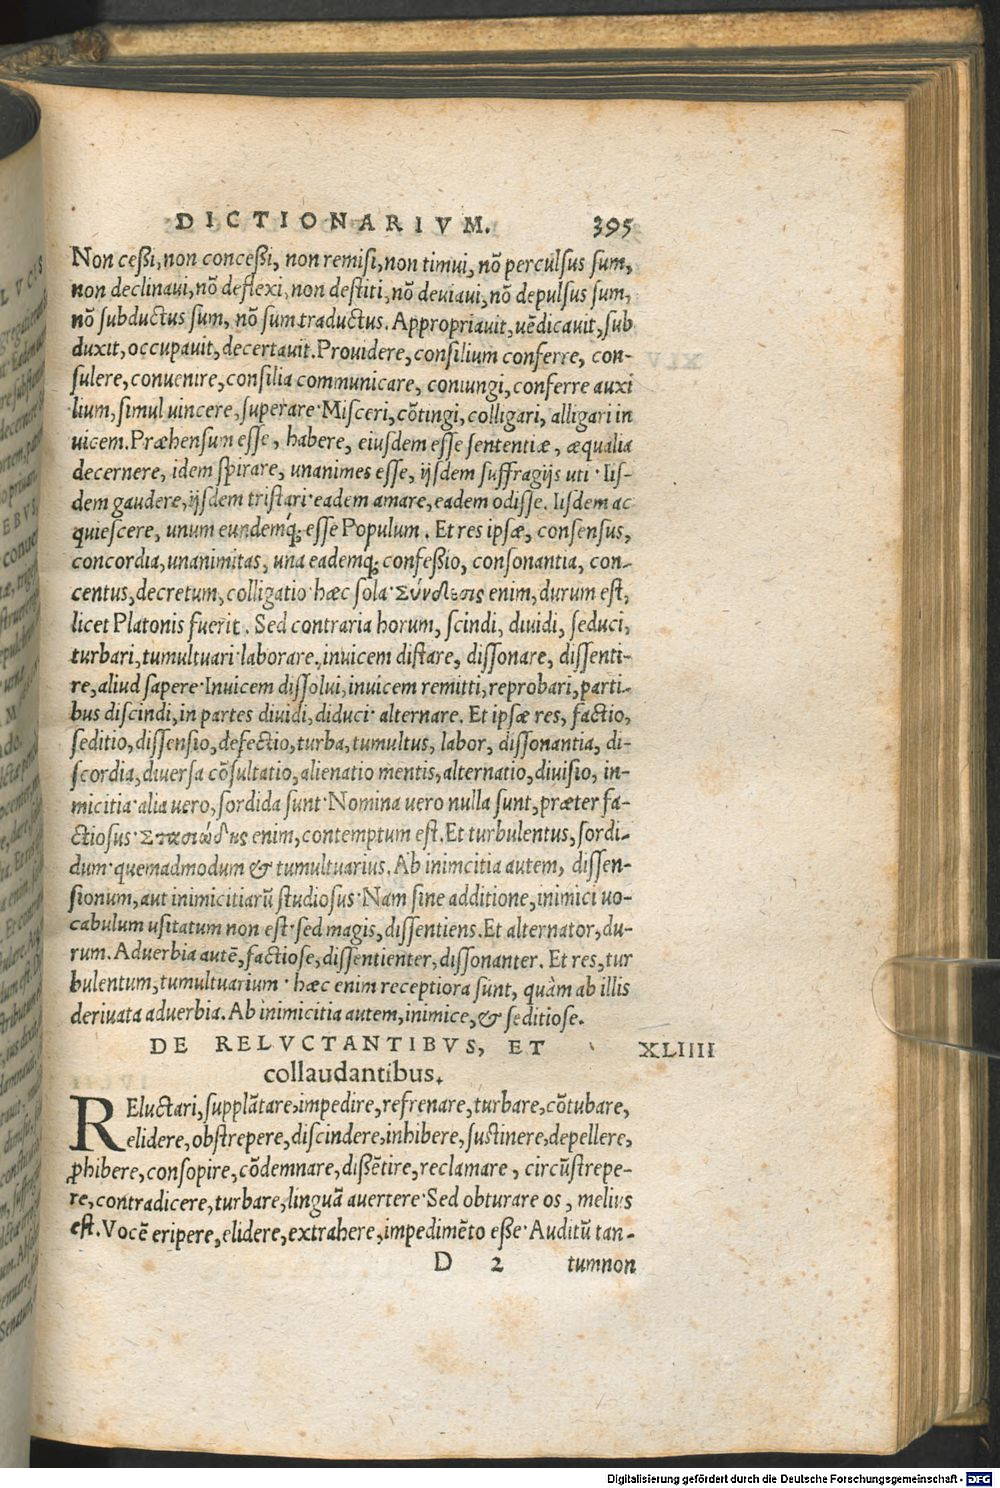 DICTIONARIVM. 395
Non ceßi, non conceßi, non remisi, non timui, nō perculsus sum,
non declinaui, nō deflexi, non destiti, nō deuiaui, nō depulsus sum,
nō subductus sum, nō sum traductus. Appropriauit, uēdicauit, sub
duxit, occupauit, decertauit. Prouidere, consilium conferre, con-
sulere, conuenire, consilia communicare, coniungi, conferre auxi
lium, simul uincere, superare· Misceri, cōtingi, colligari, alligari in
uicem. Præhensum esse, habere, eiusdem esse sententiæ, æqualia
decernere, idem spirare, unanimes esse, ijsdem suffragijs uti· Iis-
dem gaudere, ijsdem tristari· eadem amare, eadem odisse. Iisdem ac
quiescere, unum eundemq́; esse Populum. Et res ipsæ, consensus,
concordia, unanimitas, una eademq́; confeßio, consonantia, con-
centus, decretum, colligatio· hæc sola· Σύνδεσις enim, durum est,
licet Platonis fuerit. Sed contraria horum, scindi, diuidi, seduci,
turbari, tumultuari· laborare, inuicem distare, dissonare, dissenti-
re, aliud sapere· Inuicem dissolui, inuicem remitti, reprobari, parti-
bus discindi, in partes diuidi, diduci· alternare. Et ipsæ res, factio,
seditio, dissensio, defectio, turba, tumultus, labor, dissonantia, di-
scordia, diuersa cōsultatio, alienatio mentis, alternatio, diuisio, in-
micitia· alia uero, sordida sunt· Nomina uero nulla sunt, præter fa-
ctiosus· Στασιώδης enim, contemptum est. Et turbulentus, sordi-
dum· quemadmodum & tumultuarius. Ab inimcitia autem, dissen-
sionum, aut inimicitiarū studiosus· Nam sine additione, inimici uo-
cabulum usitatum non est· sed magis, dissentiens. Et alternator, du-
rum. Aduerbia autē, factiose, dissentienter, dissonanter. Et res, tur
bulentum, tumultuarium· hæc enim receptiora sunt, quàm ab illis
deriuata aduerbia. Ab inimicitia autem, inimice, & seditiose.
DE RELVCTANTIBVS, ET XLIIII
collaudantibus.
REluctari, supplātare, impedire, refrenare, turbare, cōtubare,
elidere, obstrepere, discindere, inhibere, sustinere, depellere,
ꝓhibere, consopire, cōdemnare, dißētire, reclamare, circūstrepe-
re, contradicere, turbare, linguā auertere· Sed obturare os, melius
est. Vocē eripere, elidere, extrahere, impedimēto eße· Auditū tan-
D 2 tumnon
Digitalisierung gefördert durch die Deutsche Forschungsgemeinschaft - DFG